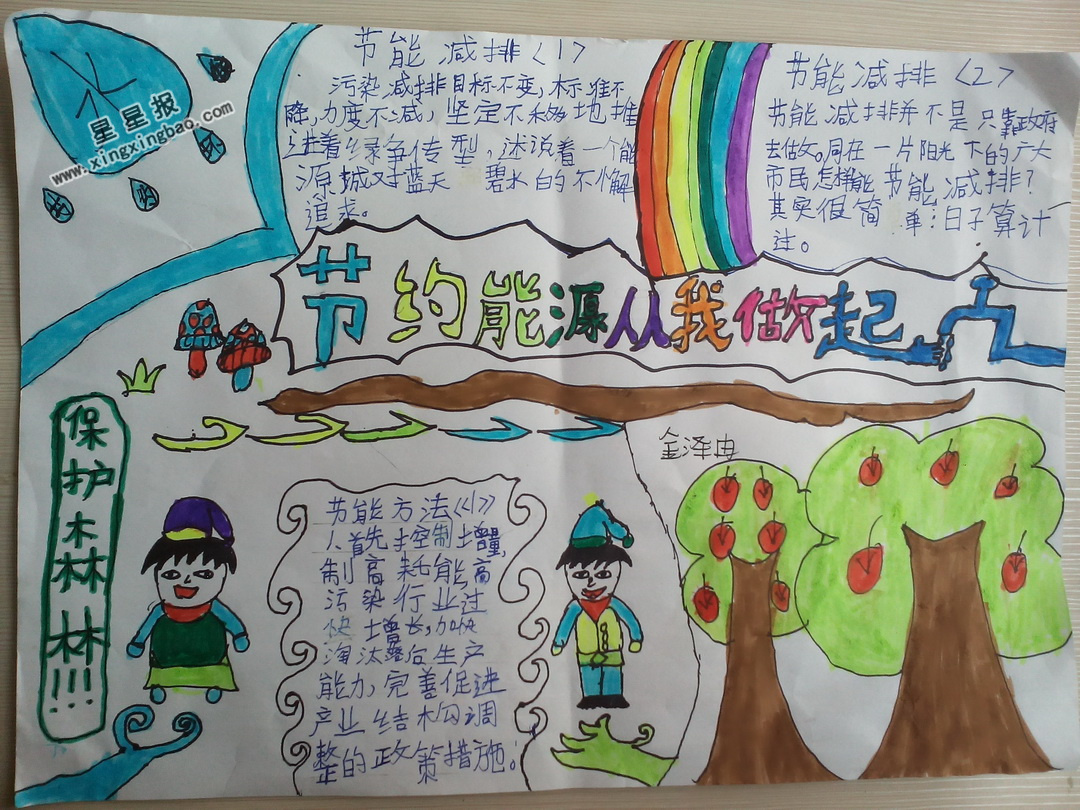 星星报
www.xingxingbao.com
节能减排<1>
污染减排目标不变,标准不
降,力度不减,坚定不移地推
进着绿争传型,述说着一个能
源城对蓝天 碧水的不懈
追求。
节能减排<2>
节能减排并不是只靠政府
去做。同在一片阳光下的广大
市民怎样能节能减排?
其实很简单:日子算计
过。
节约能源从我做起
保护森林!!!
金泽冉
节能方法<<1>>
人首先控制增量,
制高耗能高
污染行业过
快增长,加快
淘汰落后生产
能力,完善促进
产业结构调
整的政策措施。